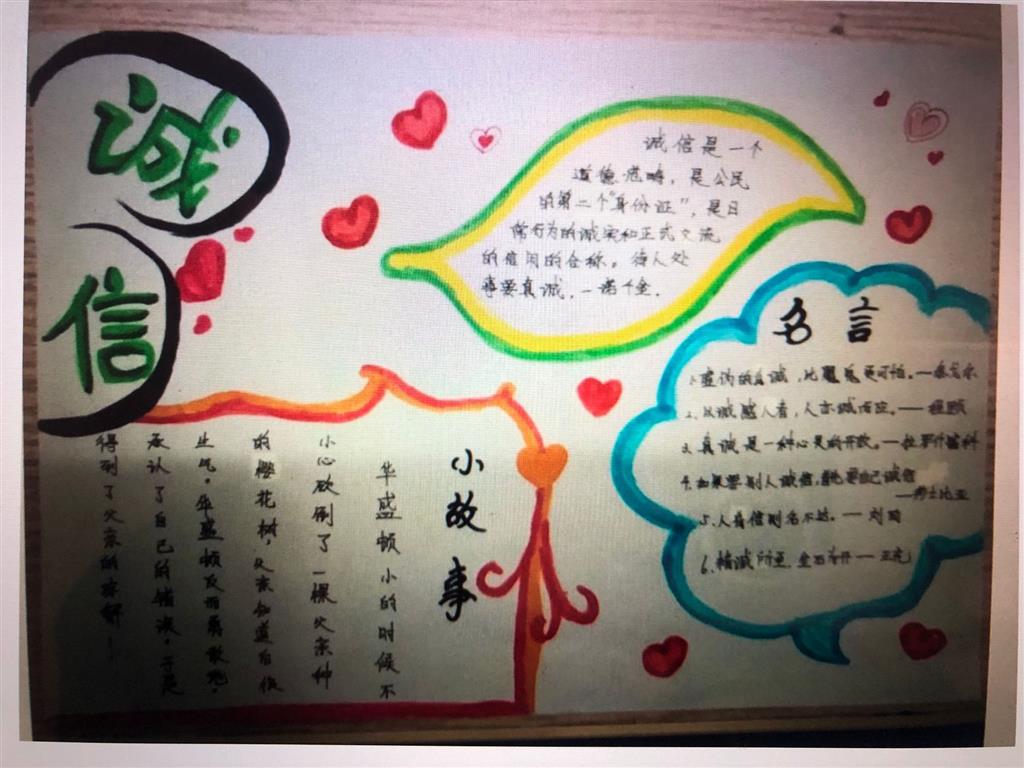 诚
信
诚信是一个
道德范畴，是公民
的第二个"身份证"，是日
常行为的诚实和正式交流
的信用的合称。待人处
事要真诚，一诺千金.
名言
1.虚伪的真诚，比魔鬼更可怕。—泰戈尔
2.以诚感人者，人亦诚而应。——程颐
3.真诚是一种心灵的开放。—拉罗什富科
4.如果要别人诚信，首先要自己诚信
—莎士比亚
5.人背信则名不达。—刘向
6.精诚所至，金石为开——王充
小故事
华盛顿小的时候不
小心砍倒了一棵父亲种
的樱花树，父亲知道后很
生气。华盛顿反而勇敢地，
承认了自己的错误。于是
得到了父亲的谅解！